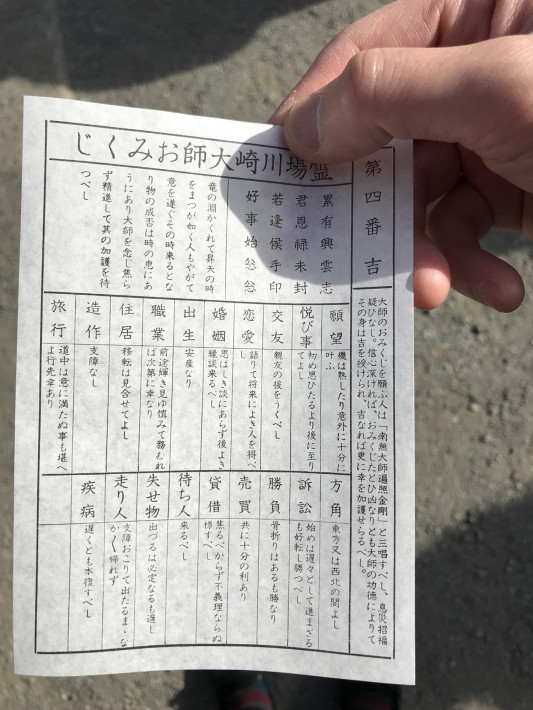 霊場川崎大師おみくじ
第四番吉
大師のおみくじを願ふ人は「南無大師遍照金剛」と三唱すべし、息災招福
疑ひなし。信心深ければ、おみくじたとひ凶なりとも大師の功徳によりて
その身は吉を授けられ、吉なれば更に幸を加護せらるべし。
累有興雲志
君恩禄未封
若逢侯手印
好事始怱怱
竜の淵かくれて昇天の時
をまつが如く人もやがて
意を遂ぐその時来るとな
り物の成否は時の恵にあ
うにあり大師を念じ焦ら
ず精進して其の加護を待
つべし
願望
機は熟したり意外に十分に
叶ふ
悦び事
初め思ひたるより後に至り
てよし
交友
親友の援をうくべし
恋愛
語りて将来によき人を得べ
し
婚姻
思はしき談にあらず後よき
縁談来るべし
出生
安産なり
職業
前途輝き見ゆ慎みて務むれ
ば次第に幸なり
住居
移転は見合せてよし
造作
支障なし
旅行
道中は意に満たぬ事も堪へ
よ行先幸あり
方角
東方又は西北の間よし
訴訟
始めは遅々として進まざる
も好転し勝つべし
勝負
骨折りはあるも勝なり
売買
共に十分の利あり
貸借
焦るべからず不義理ならぬ
様すべし
待ち人
来るべし
失せ物
出づるは必定なるも遅し
走り人
支障おこりて出たるまゝな
かく帰れず
疾病
遅くとも本復すべし